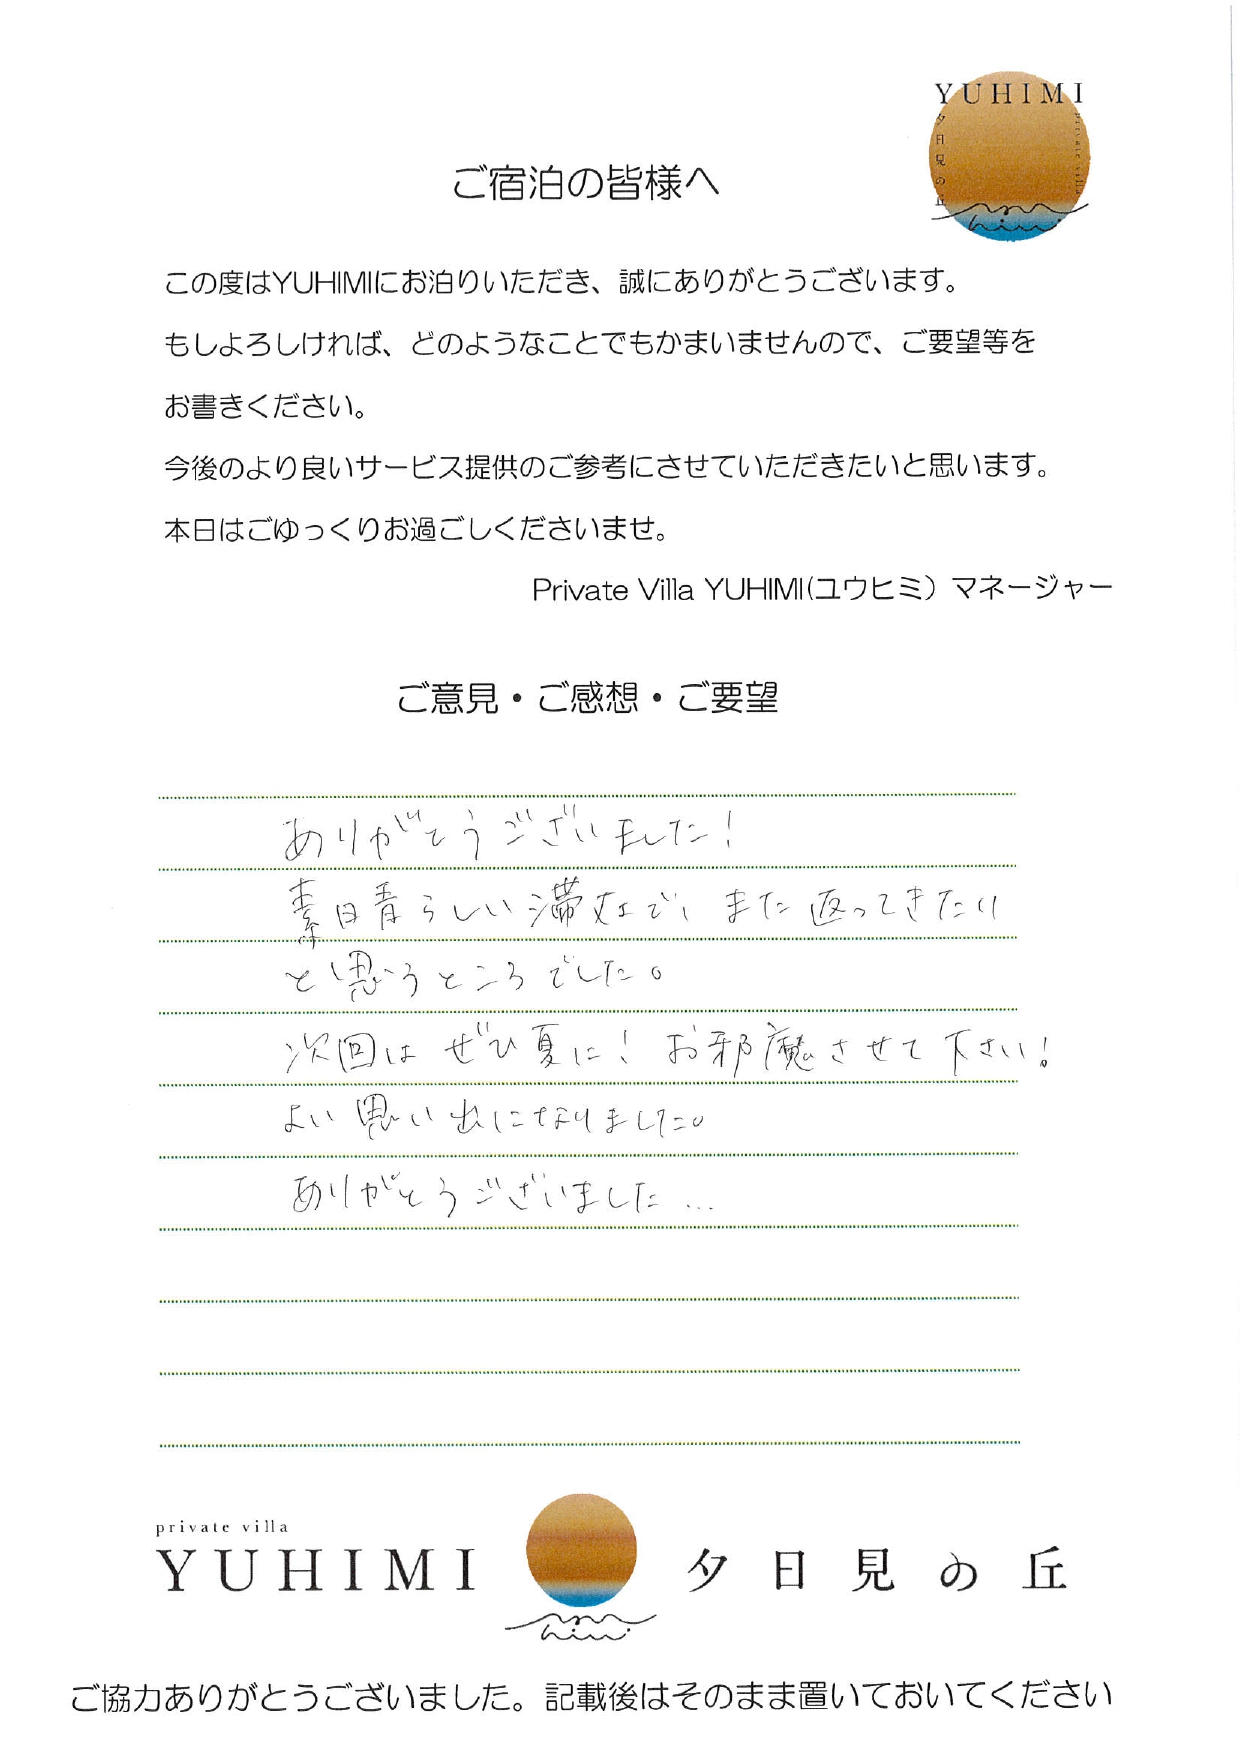 YUHIMI
夕日見の丘
private villa
ご宿泊の皆様へ
この度はYUHIMIにお泊りいただき、誠にありがとうございます。
もしよろしければ、どのようなことでもかまいませんので、ご要望等を
お書きください。
今後のより良いサービス提供のご参考にさせていただきたいと思います。
本日はごゆっくりお過ごしくださいませ。
Private Villa YUHIMI(ユウヒミ）マネージャー
ご意見・ご感想・ご要望
ありがとうございました！
素晴らしい滞在で、また返ってきたい
と思うところでした。
次回はぜひ夏に！お邪魔させて下さい！
よい思い出になりました。
ありがとうございました…
private villa
YUHIMI 夕日見の丘
ご協力ありがとうございました。記載後はそのまま置いておいてください